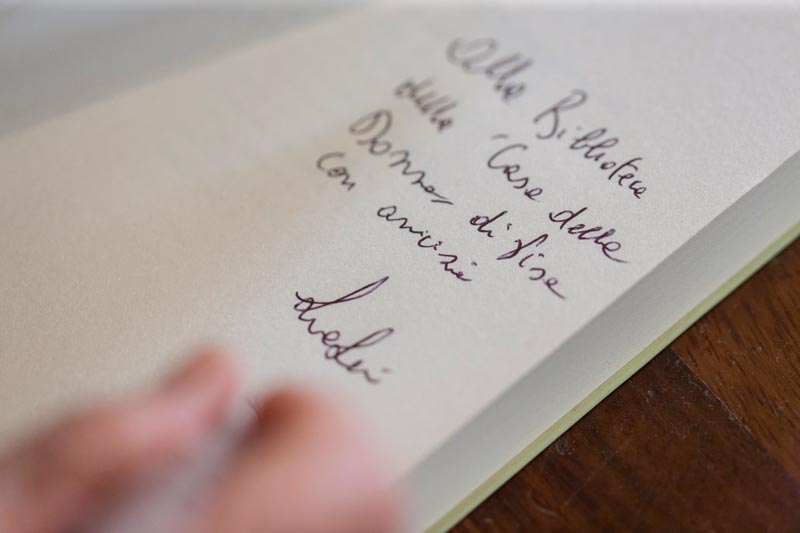 Alla Biblioteca
della "Casa delle
Donne di Pisa
con amicizia